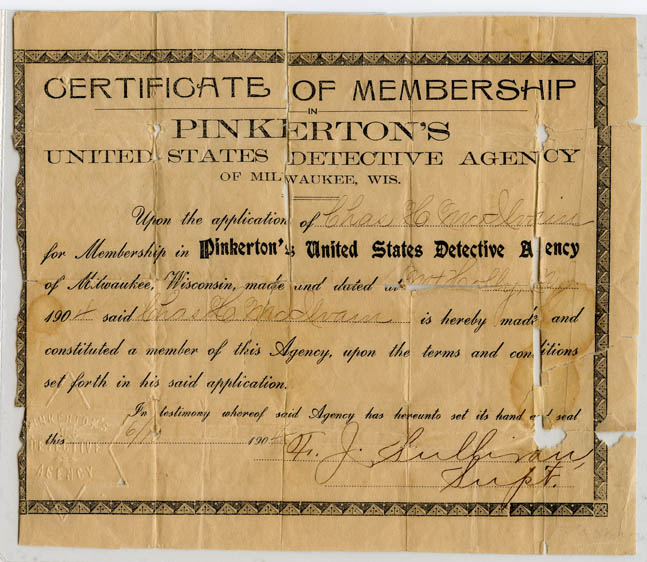 CERTIFICATE OF MEMBERSHIP
IN
PINKERTON'S
UNITED STATES DETECTIVE AGENCY
OF MILWAUKEE, WIS.
Upon the application of Chas H McIlvain
for Membership in Pinkerton's United States Detective Agency
of Milwaukee, Wisconsin, made and dated at Mt Holly
1904 said Chas H McIlvain is hereby made and
constituted a member of this Agency, upon the terms and conditions
set forth in his said application.
In testimony whereof said Agency has hereunto set its hand and seal
this 190
J. Sullivan,
Supt.
PINKERTON'S
DETECTIVE
AGENCY